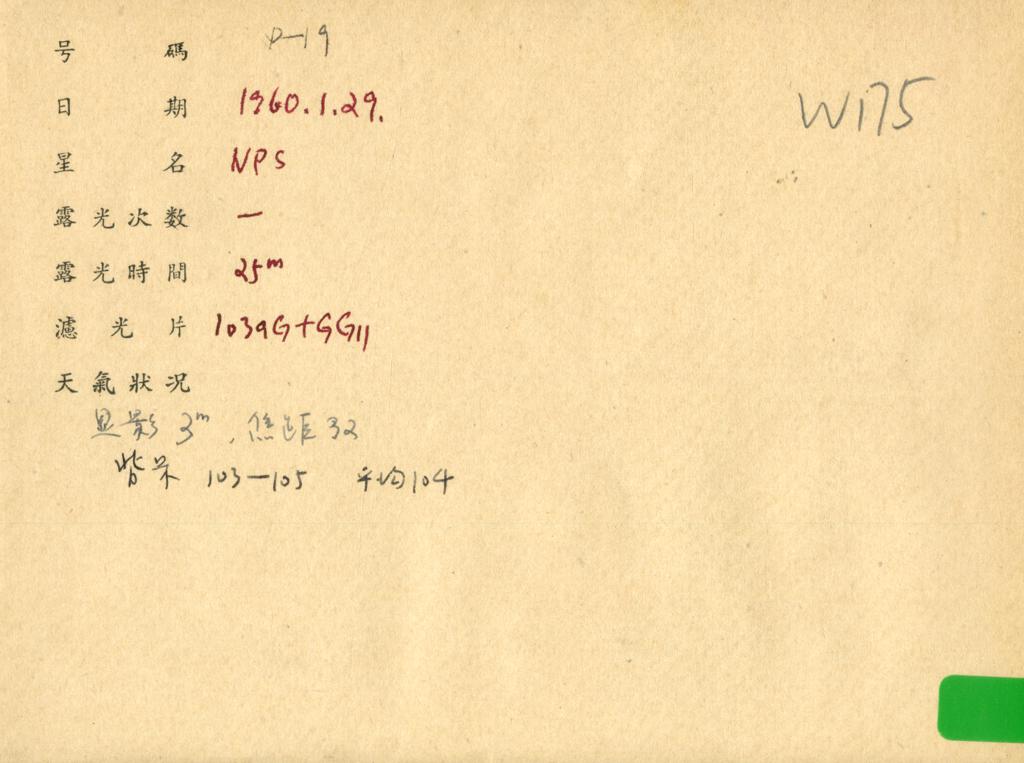 号碼 P-19
W175
日期 1960.1.29.
星名 NPS
露光次数 一
露光時間 25ᵐ
濾光片 103aG+GG11
天氣狀况
显影 3ᵐ, 焦距 32
背景 103—105 平均104